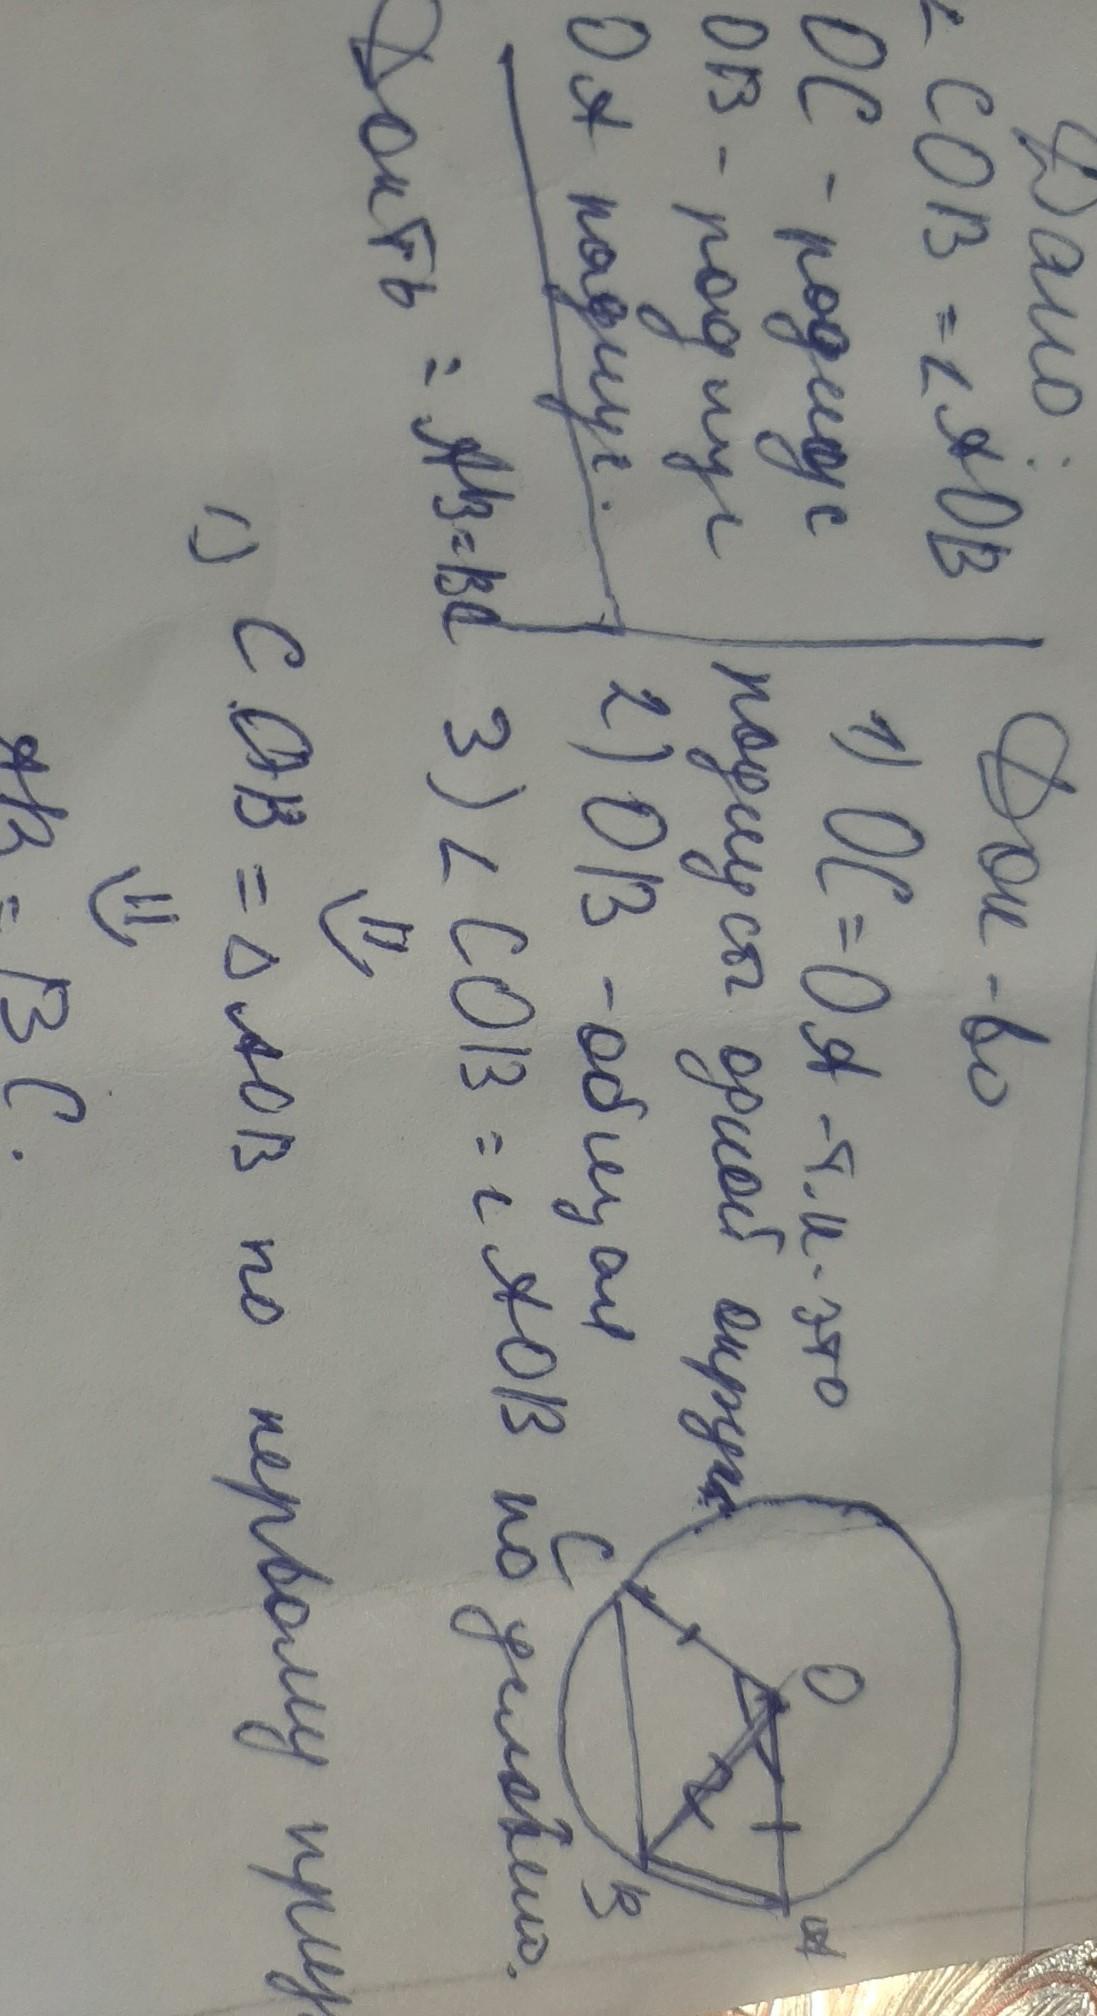 Дано:
∠ COB = ∠ AOB
OC - радиус
OB - радиус
OA радиус.
Док-ть : AB = BC
Док-во
1) OC = OA - т.к. это
радиусы одной окружн
2) OB - общая
3) ∠ COB = ∠ AOB по условию.
⇓
COB = △ AOB по первому призн
⇓
AB = BC.
O
C
B
A